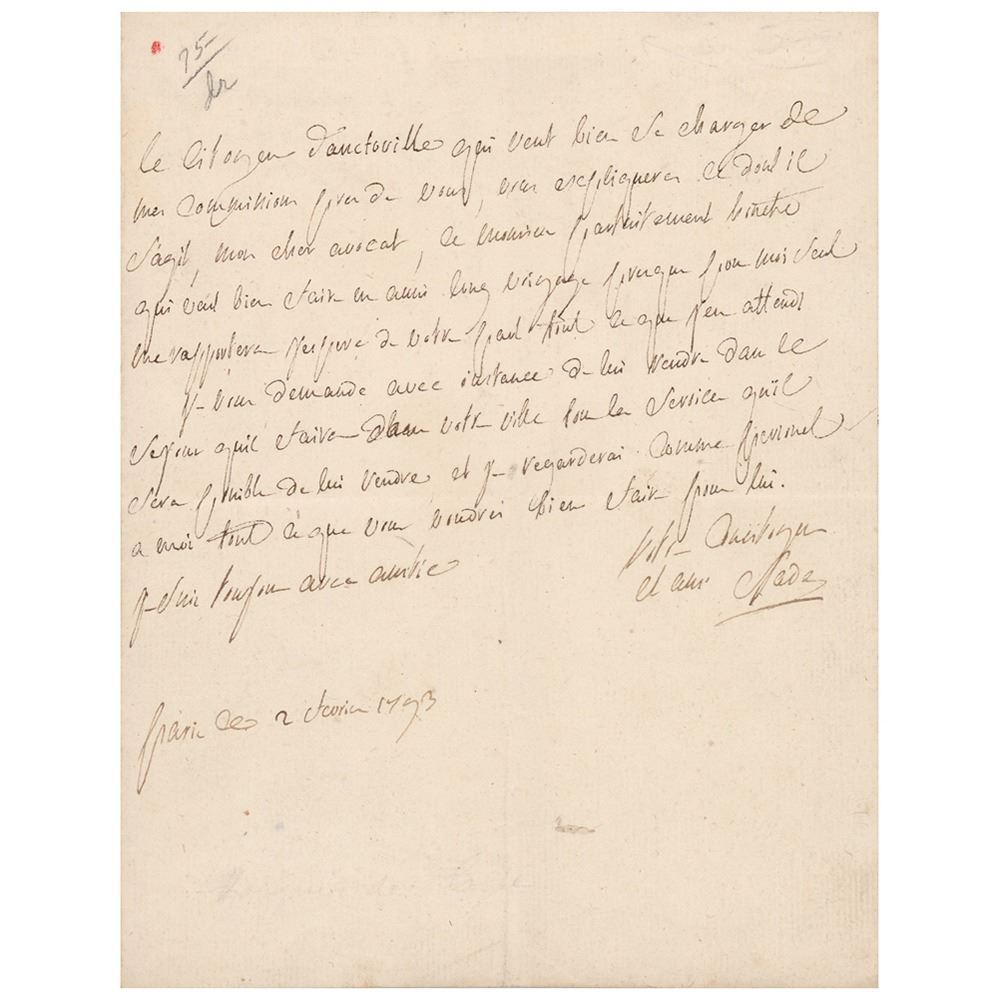 75-
le Citoyen Dauctoville qui veut bien se charger de
mes Commissions pres de vous, vous expliquera ce dont il
s'agit, mon cher avocat, ce monsieur parfaitement honete
qui veut bien faire un aussi long voyage presque pour moi seul
me rapportera j'espere de votre part tout ce que j'en attends
je vous demande avec instance de lui rendre dans le
sejour quil faira dans votre ville tous les services quil
sera possible de lui rendre et je regarderai comme personel
a moi tout ce que vous voudres bien faire pour lui.
je suis toujours avec amitié
votre Concitoyen
et ami Sade
paris ce 2 fevrier 1793